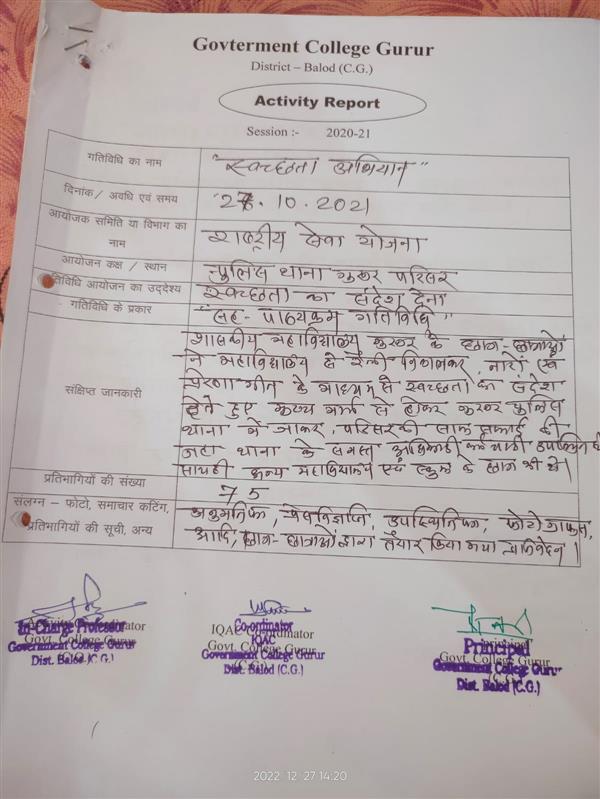 Govterment College Gurur
District – Balod (C.G.)
Activity Report
Session :- 2020-21
गतिविधि का नाम "स्वच्छता अभियान"
दिनांक / अवधि एवं समय 27.10.2021
आयोजक समिति या विभाग का नाम राष्ट्रीय सेवा योजना
आयोजन कक्ष / स्थान पुलिस थाना गुरूर परिसर
गतिविधि आयोजन का उद्देश्य स्वच्छता का संदेश देना
गतिविधि के प्रकार "सह-पाठ्यक्रम गतिविधि"
संक्षिप्त जानकारी
शासकीय महाविद्यालय गुरूर के छात्र-छात्राओं
ने महाविद्यालय से रैली निकालकर, नारों एवं
प्रेरणा गीत के माध्यम से स्वच्छता का संदेश
देते हुए मुख्य मार्ग से होकर गुरूर पुलिस
थाना में जाकर, परिसर की साफ सफाई की
जहां थाना के समस्त अधिकारी कर्मचारी उपस्थित थे
साथही अन्य महाविद्यालय एवं स्कूल के छात्र भी थे।
प्रतिभागियों की संख्या 75
संलग्न – फोटो, समाचार कटिंग, प्रतिभागियों की सूची, अन्य
अनुमतिपत्र, प्रेसविज्ञप्ति, उपस्थितिपत्रक, फोटोग्राफ्स,
आदि, छात्र-छात्राओं द्वारा तैयार किया गया प्रतिवेदन।
In-Charge Professor
Government College Gurur
Dist. Balod (C.G.)
IQAC Co-ordinator
Govt. College Gurur
Co-ordinator
IQAC
Government College Gurur
Dist. Balod (C.G.)
Principal
Govt. College Gurur
Principal
Government College Gurur
Dist. Balod (C.G.)
2022-12-27 14:20